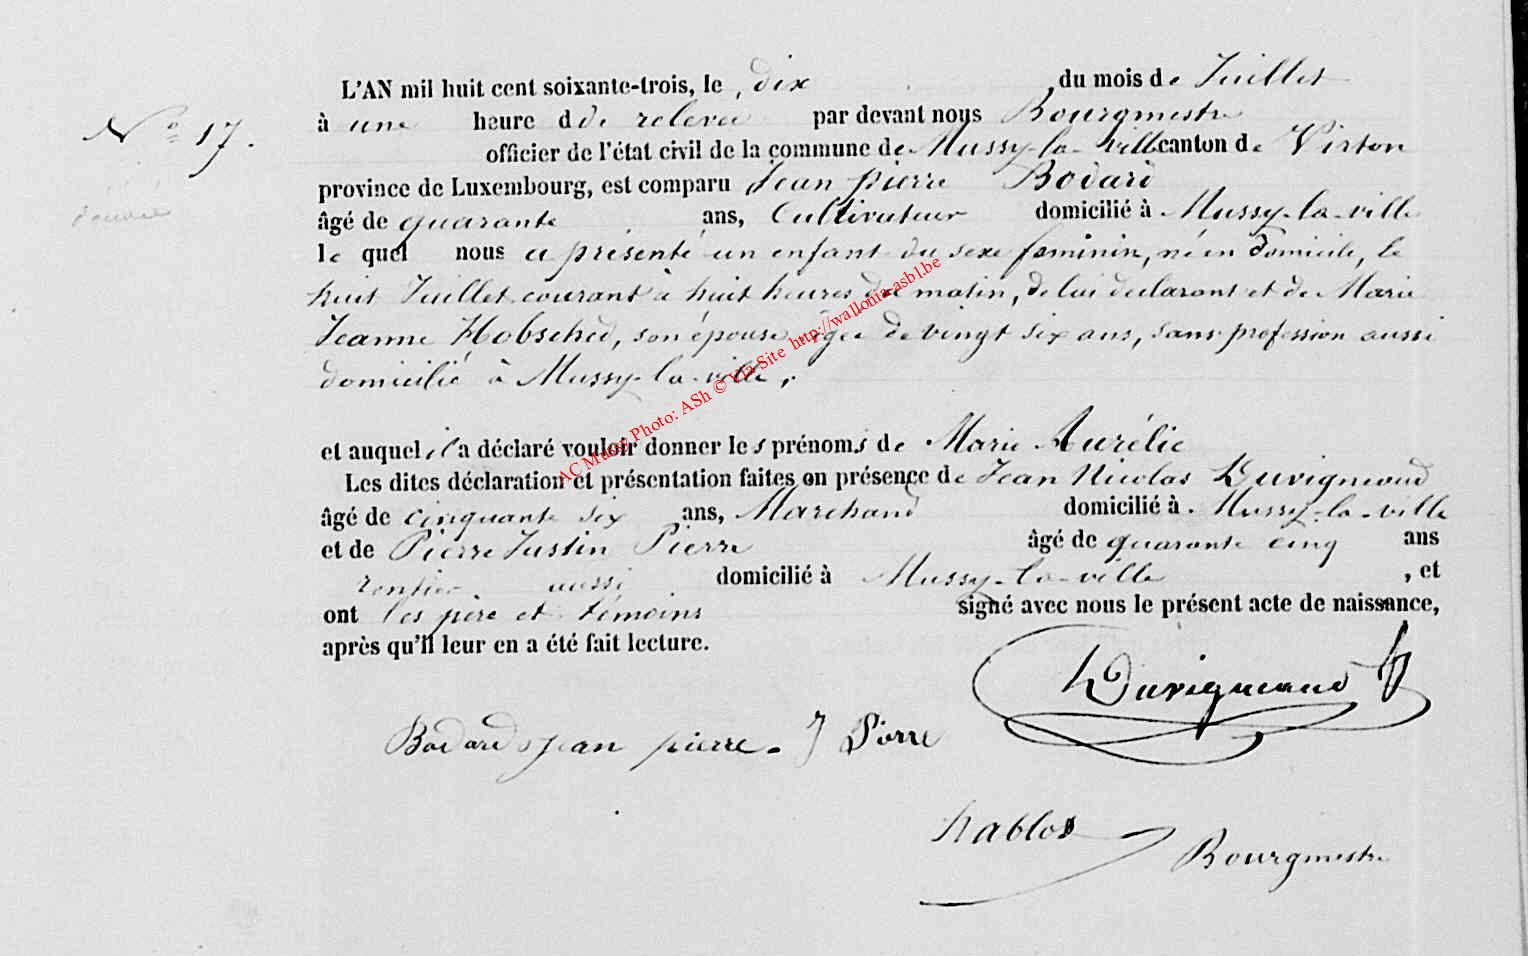 L'AN mil huit cent soixante-trois, le dix du mois de Juillet
N° 17.
à une heure d de relevée par devant nous Bourgmestre
officier de l'état civil de la commune de Mussy-la-ville canton de Virton
province de Luxembourg, est comparu Jean pierre Bodard
âgé de quarante ans, Cultivateur domicilié à Mussy-la-ville
le quel nous a présenté un enfant du sexe féminin, né en domicile, le
huit Juillet courant à huit heures du matin, de lui déclarant et de Marie
Jeanne Hobsched, son épouse, âgée de vingt six ans, sans profession aussi
domicilié à Mussy-la-ville,
et auquel il a déclaré vouloir donner les prénoms de Marie Aurélie
Les dites déclaration et présentation faites en présence de Jean Nicolas Duvigneaud
âgé de cinquante six ans, Marchand domicilié à Mussy-la-ville
et de Pierre Justin Pierre âgé de quarante cinq ans
rentier aussi domicilié à Mussy-la-ville, et
ont les père et témoins signé avec nous le présent acte de naissance,
après qu'il leur en a été fait lecture.
Duvigneaud
Bodard jean pierre. J Pierre
Bourgmestre
AC Mussy Photo: ASh © Via Site http://wallonia-asbl.be